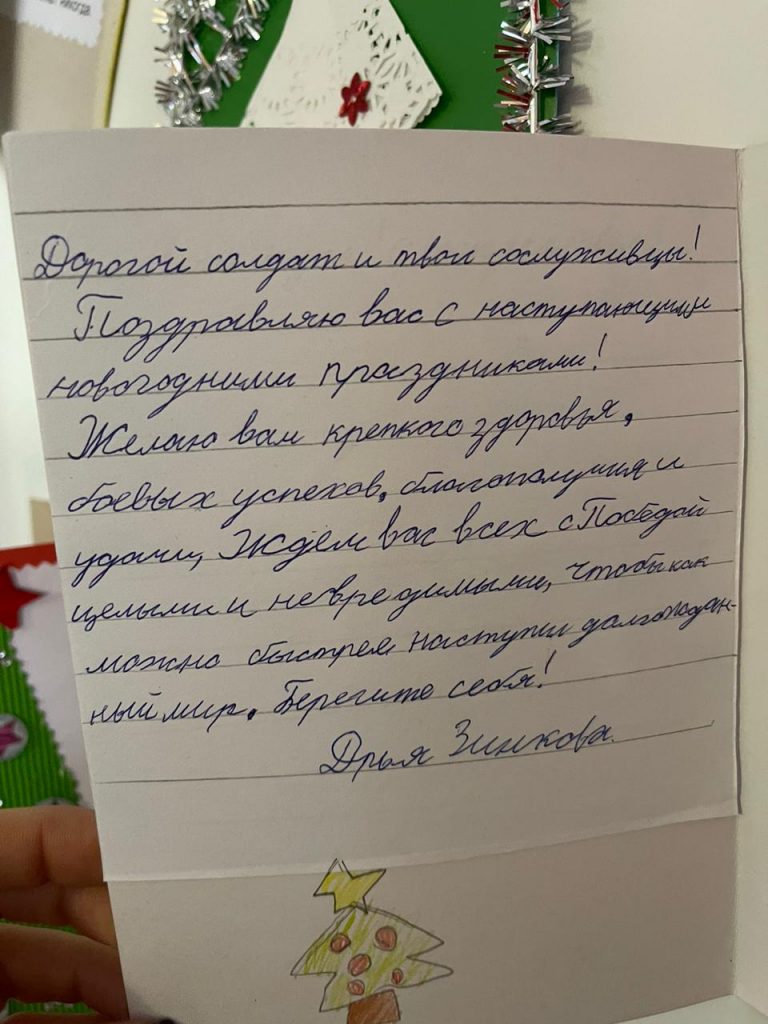 Дорогой солдат и твои сослуживцы!
Поздравляю вас с наступающими
новогодними праздниками!
Желаю вам крепкого здоровья,
боевых успехов, благополучия и
удачи, Ждём вас всех с Победой
целыми и невредимыми, чтобы как
можно быстрее наступил долгождан-
ный мир. Берегите себя!
Дрья Зинкова.